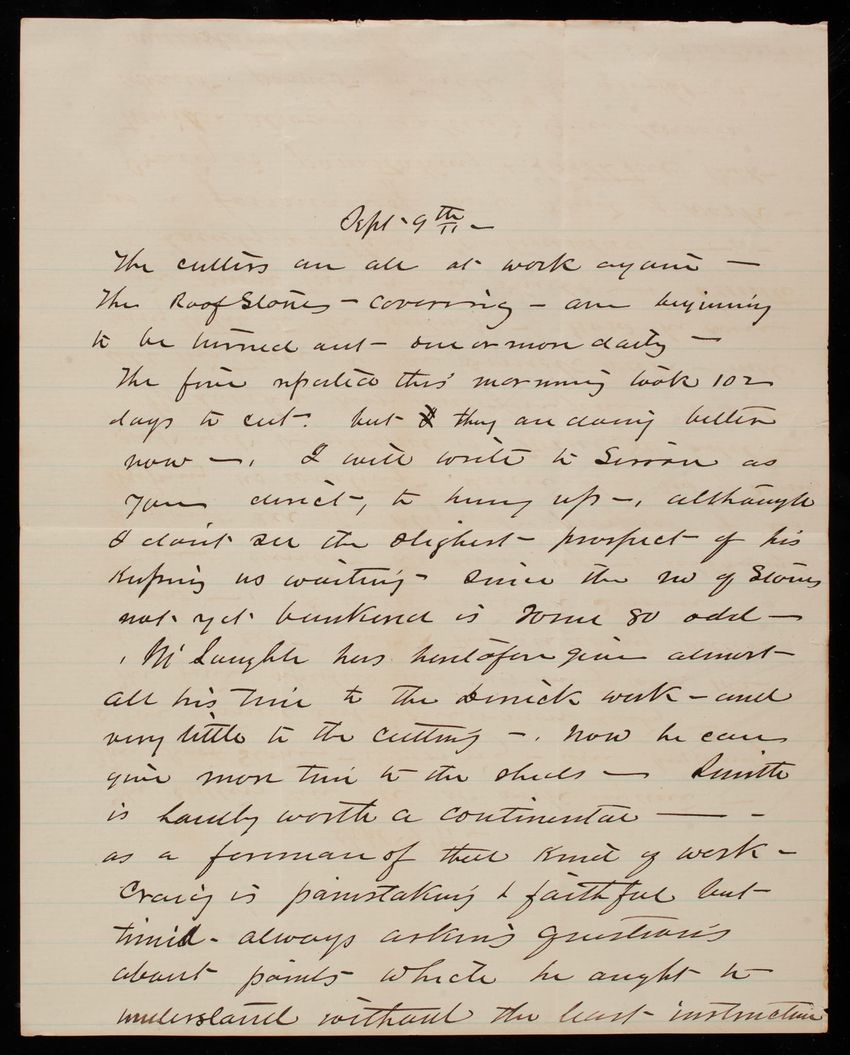 Sept. 9th —
The cutters are all at work again —
The Roof Stones — covering — are beginning
to be turned out — one or more daily —
The five reported this morning took 102
days to cut. but they are doing better
now —. I will write to as
you direct, to hurry up —, although
I don't see the slighest prospect of his
keeping us waiting — since the no of Stones
not yet bunkered is some 80 odd —
McLaughlin has heretofore given almost
all his time to the derrick work — and
very little to the cutting —. Now he can
give more time to the sheds — Smith
is hardly worth a continental — -
as a foreman of that kind of work —
Craig is painstaking & faithful but
timid — always asking questions
about points which he ought to
understand without the least instruction